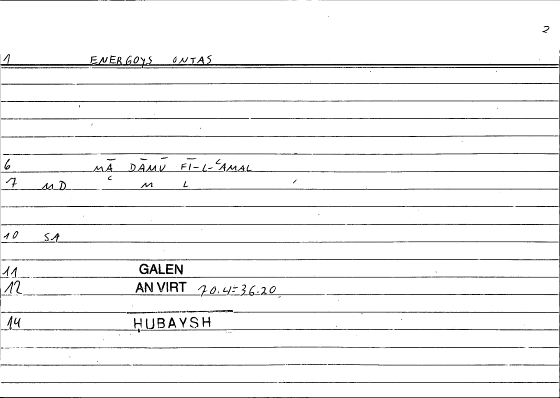 2
1 ENERGOYS ONTAS
6 MĀ DĀMŪ FĪ-L-ʿAMAL
7 MD C M L
10 SA
11 GALEN
12 AN VIRT 70.4=36.20
14 ḤUBAYSH